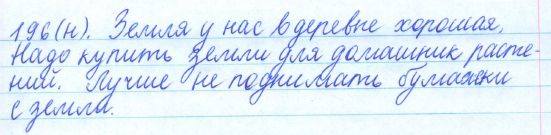 196(н). Земля у нас в деревне хорошая.
Надо купить земли для домашник расте-
ний. Лучше не поднимать бумажки
с земли.